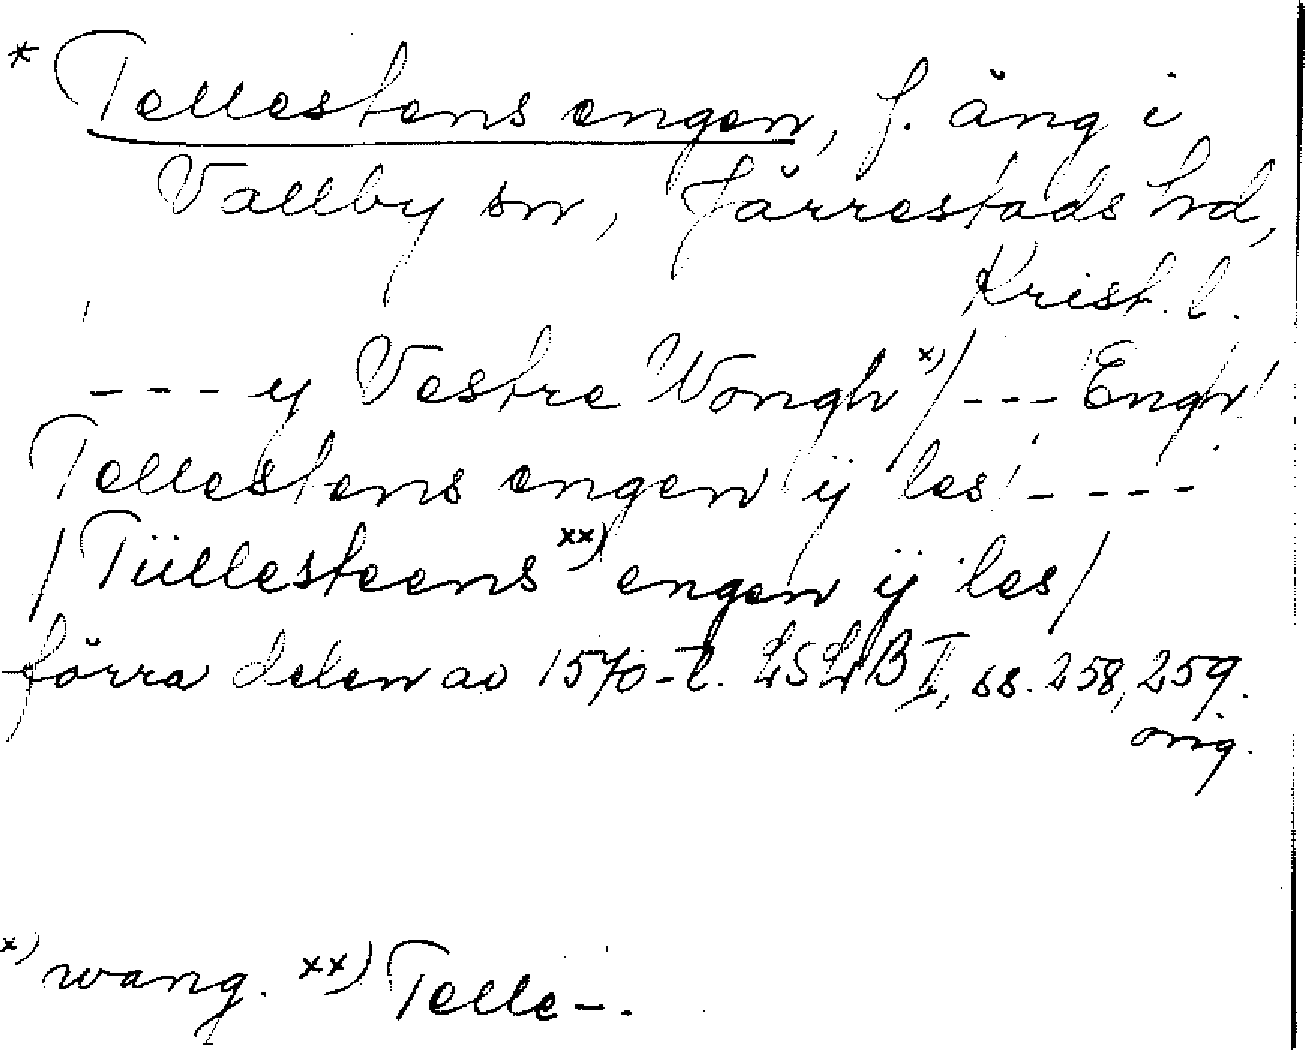 * Tellestens engen, f. äng i
Vallby sn, Järrestads hd,
Krist. l.
- - - y Vestre Wongh x) / - - - Engh
Tellestens engen ÿ les - - - -
/ Tüllesteens xx) engen ÿ les /
förra delen av 1570-t. LSLB I, ss. 258, 259.
orig.
x) wang. xx) Telle-.